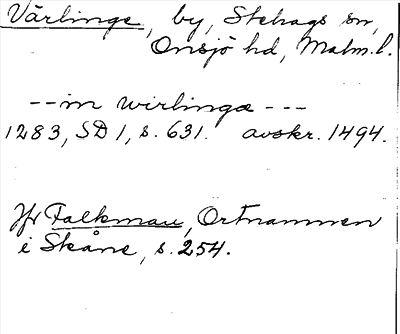 Värlinge, by, Stehags sn,
Onsjö hd, Malm. l.
--in wirlinga ---
1283, SD 1, s. 631. avskr. 1494.
Jfr Falkman, Ortnamnen
i Skåne, s. 254.